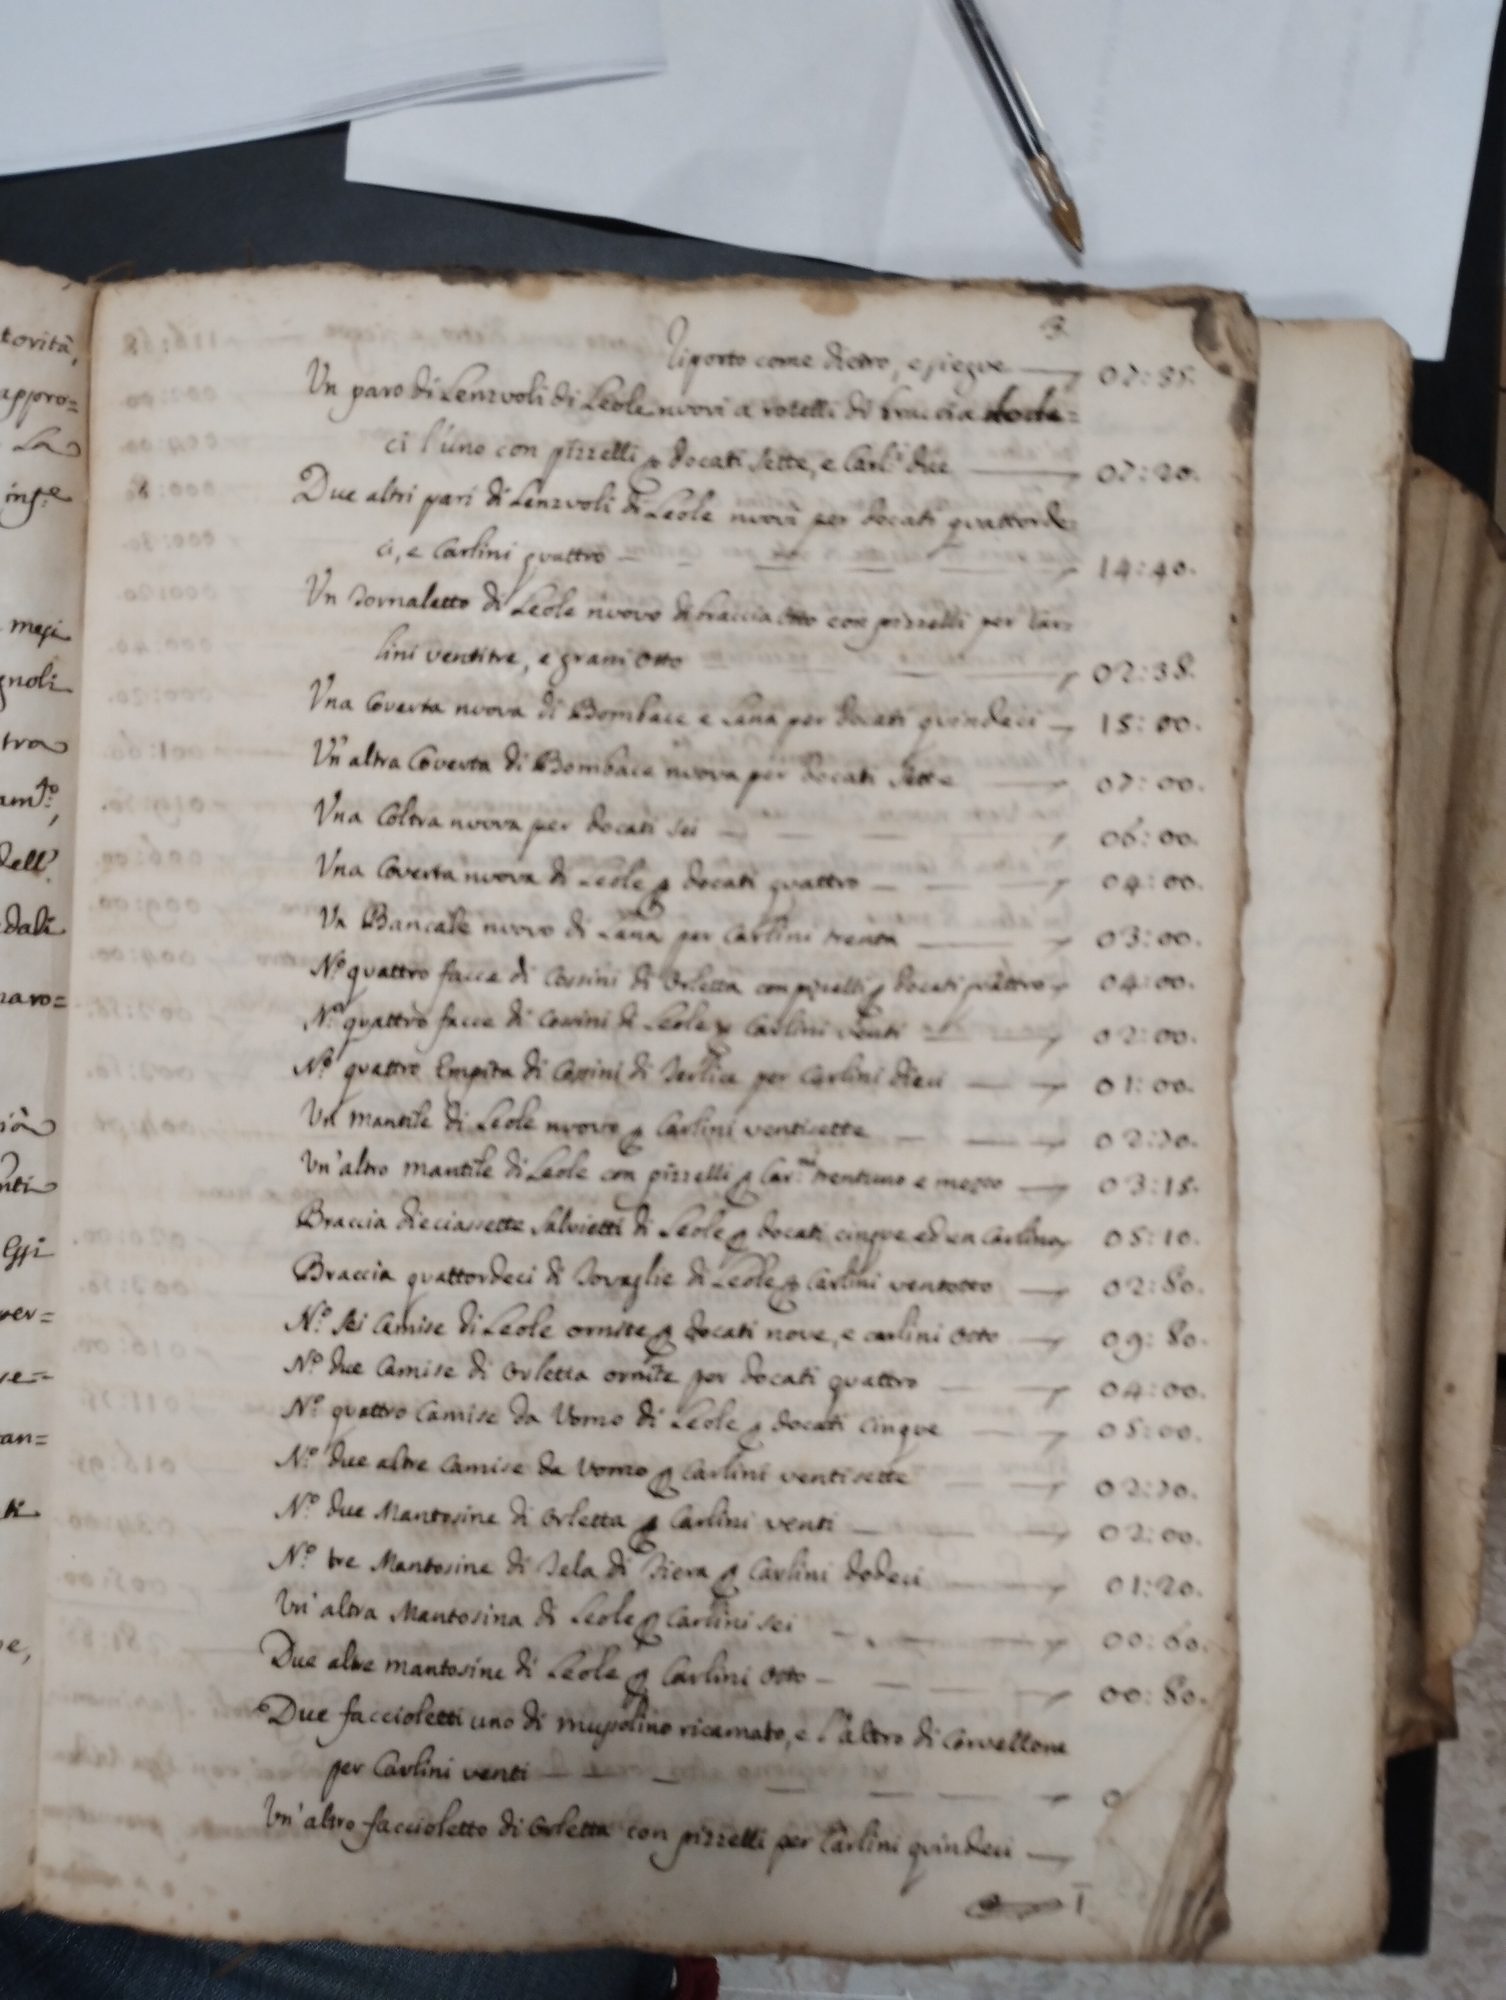 torità,
appro=
La
ing.e
megi
gnoli
tra
am.to,
dell'
dali
naro=
nti
ggi
ver=
ve=
an=
ti
e,
3
Riporto come dietro, e siegue 07:85.
Un paro di Lenzuoli di Leole nuovi a rotelli di braccia dode=
ci l'uno con pizzelli per docati sette, e Carl.i due 07:20.
Due altri pari di Lenzuoli di Leole nuovi per docati quattorde=
ci, e Carlini quattro 14:40.
Un Tornaletto di Leole nuovo di braccia otto con pizzelli per Car=
lini ventitre, e grani otto 02:38.
Una Coverta nuova di Bombace e Lana per docati quindeci 15:00.
Un'altra Coverta di Bombace nuova per docati sette 07:00.
Una Coltra nuova per docati sei 06:00.
Una Coverta nuova di Leole per docati quattro 04:00.
Un Bancale nuovo di Lana per Carlini trenta 03:00.
N.o quattro facce di Cossini di Orletta con pizzelli per docati quattro 04:00.
N.o quattro facce di Cossini di Leole per Carlini venti 02:00.
N.o quattro Empita di Cossini di Terlice per Carlini dieci 01:00.
Un mantile di Leole nuovo per Carlini ventisette 02:70.
Un'altro mantile di Leole con pizzelli per Car.ni trentuno e mezzo 03:15.
Braccia dieciassette Salvietti di Leole per docati cinque ed un Carlino 05:10.
Braccia quattordeci di Tovaglie di Leole per Carlini ventotto 02:80.
N.o sei Camise di Leole ornite per docati nove, e carlini otto 09:80.
N.o due Camise di Orletta ornite per docati quattro 04:00.
N.o quattro Camise da Uomo di Leole per docati cinque 05:00.
N.o due altre Camise da Uomo per Carlini ventisette 02:70.
N.o due Mantesine di Orletta per Carlini venti 02:00.
N.o tre Mantesine di Tela di Fiera per Carlini dodeci 01:20.
Un'altra Mantesina di Leole per Carlini sei 00:60.
Due altre mantesine di Leole per Carlini otto 00:80.
Due faccioletti uno di mussolino ricamato, e l'altro di Corvellone
per Carlini venti 0
Un'altro faccioletto di Orletta con pizzelli per Carlini quindeci